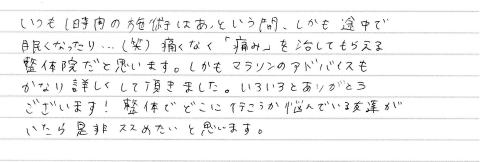 いつも1時間の施術はあっという間、しかも途中で
眠くなったり…(笑)痛くなく「痛み」を治してもらえる
整体院だと思います。しかもマラソンのアドバイスも
かなり詳しくして頂きました。いろいろとありがとう
ございます！整体でどこに行こうか悩んでいる友達が
いたら是非ススめたいと思います。